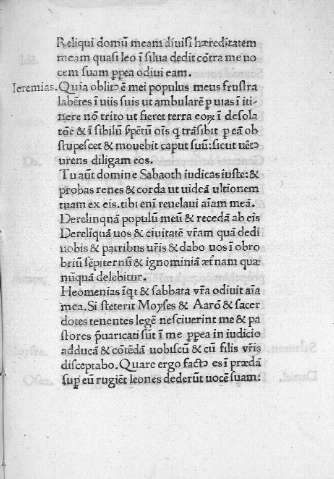 Reliqui domũ meam diuisi hæreditatem
meam quasi leo ĩ silua dedit cõtra me uo
cem suam ꝓpea odiui eam.
Ieremias. Quia oblitꝰ ē mei populus meus frustra
labētes ĩ uiis suis ut ambularēt ꝑ uias ĩ iti
nere nõ trito ut fieret terra eoꝝ ĩ desola
tõē & ĩ sibilũ ꝑpetũ oĩs q̃ trãsibit ꝑ eã ob
stupescet & mouebit caput suũ: sicut uētꝰ
urens diligam eos.
Tu aũt domine Sabaoth iudicas iuste: &
probas renes & corda ut uideã ultionem
tuam ex eis. tibi eni reuelaui aĩam meã.
Derelinquã populũ meũ & recedã ab eis
Dereliquã uos & ciuitatē vr̃am quã dedi
uobis & patribus ur̃is & dabo uos ĩ obro
briũ sēpiternũ & ignominiã æt̃nam quæ
nũquã delebitur.
Heomenias ĩqt & sabbata vr̃a odiuit aĩa
mea. Si steterit Moyses & Aarõ & sacer
dotes tenentes legē nesciuerint me & pa
stores p̃uaricati sũt ĩ me ꝓpea in iudicio
adducã & cõtēdã uobiscũ & cũ filis vr̃is
disceptabo. Quare ergo factꝰ es ĩ prædã
suꝑ eũ rugiēt leones dederũt uocē suam: